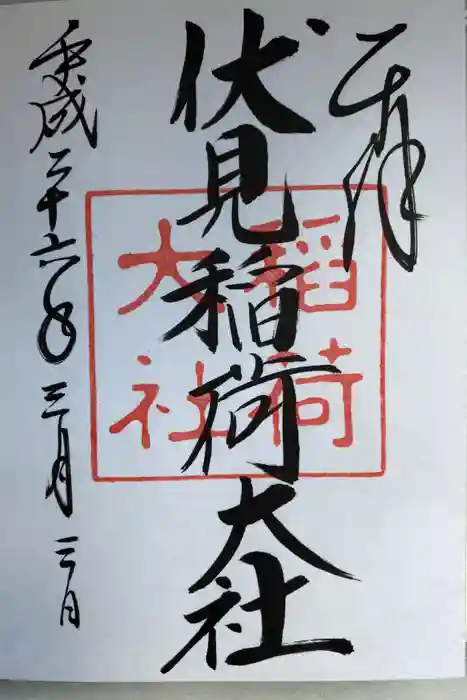 奉拝
伏見稲荷大社
稲荷
大社
平成二十六年三月三日